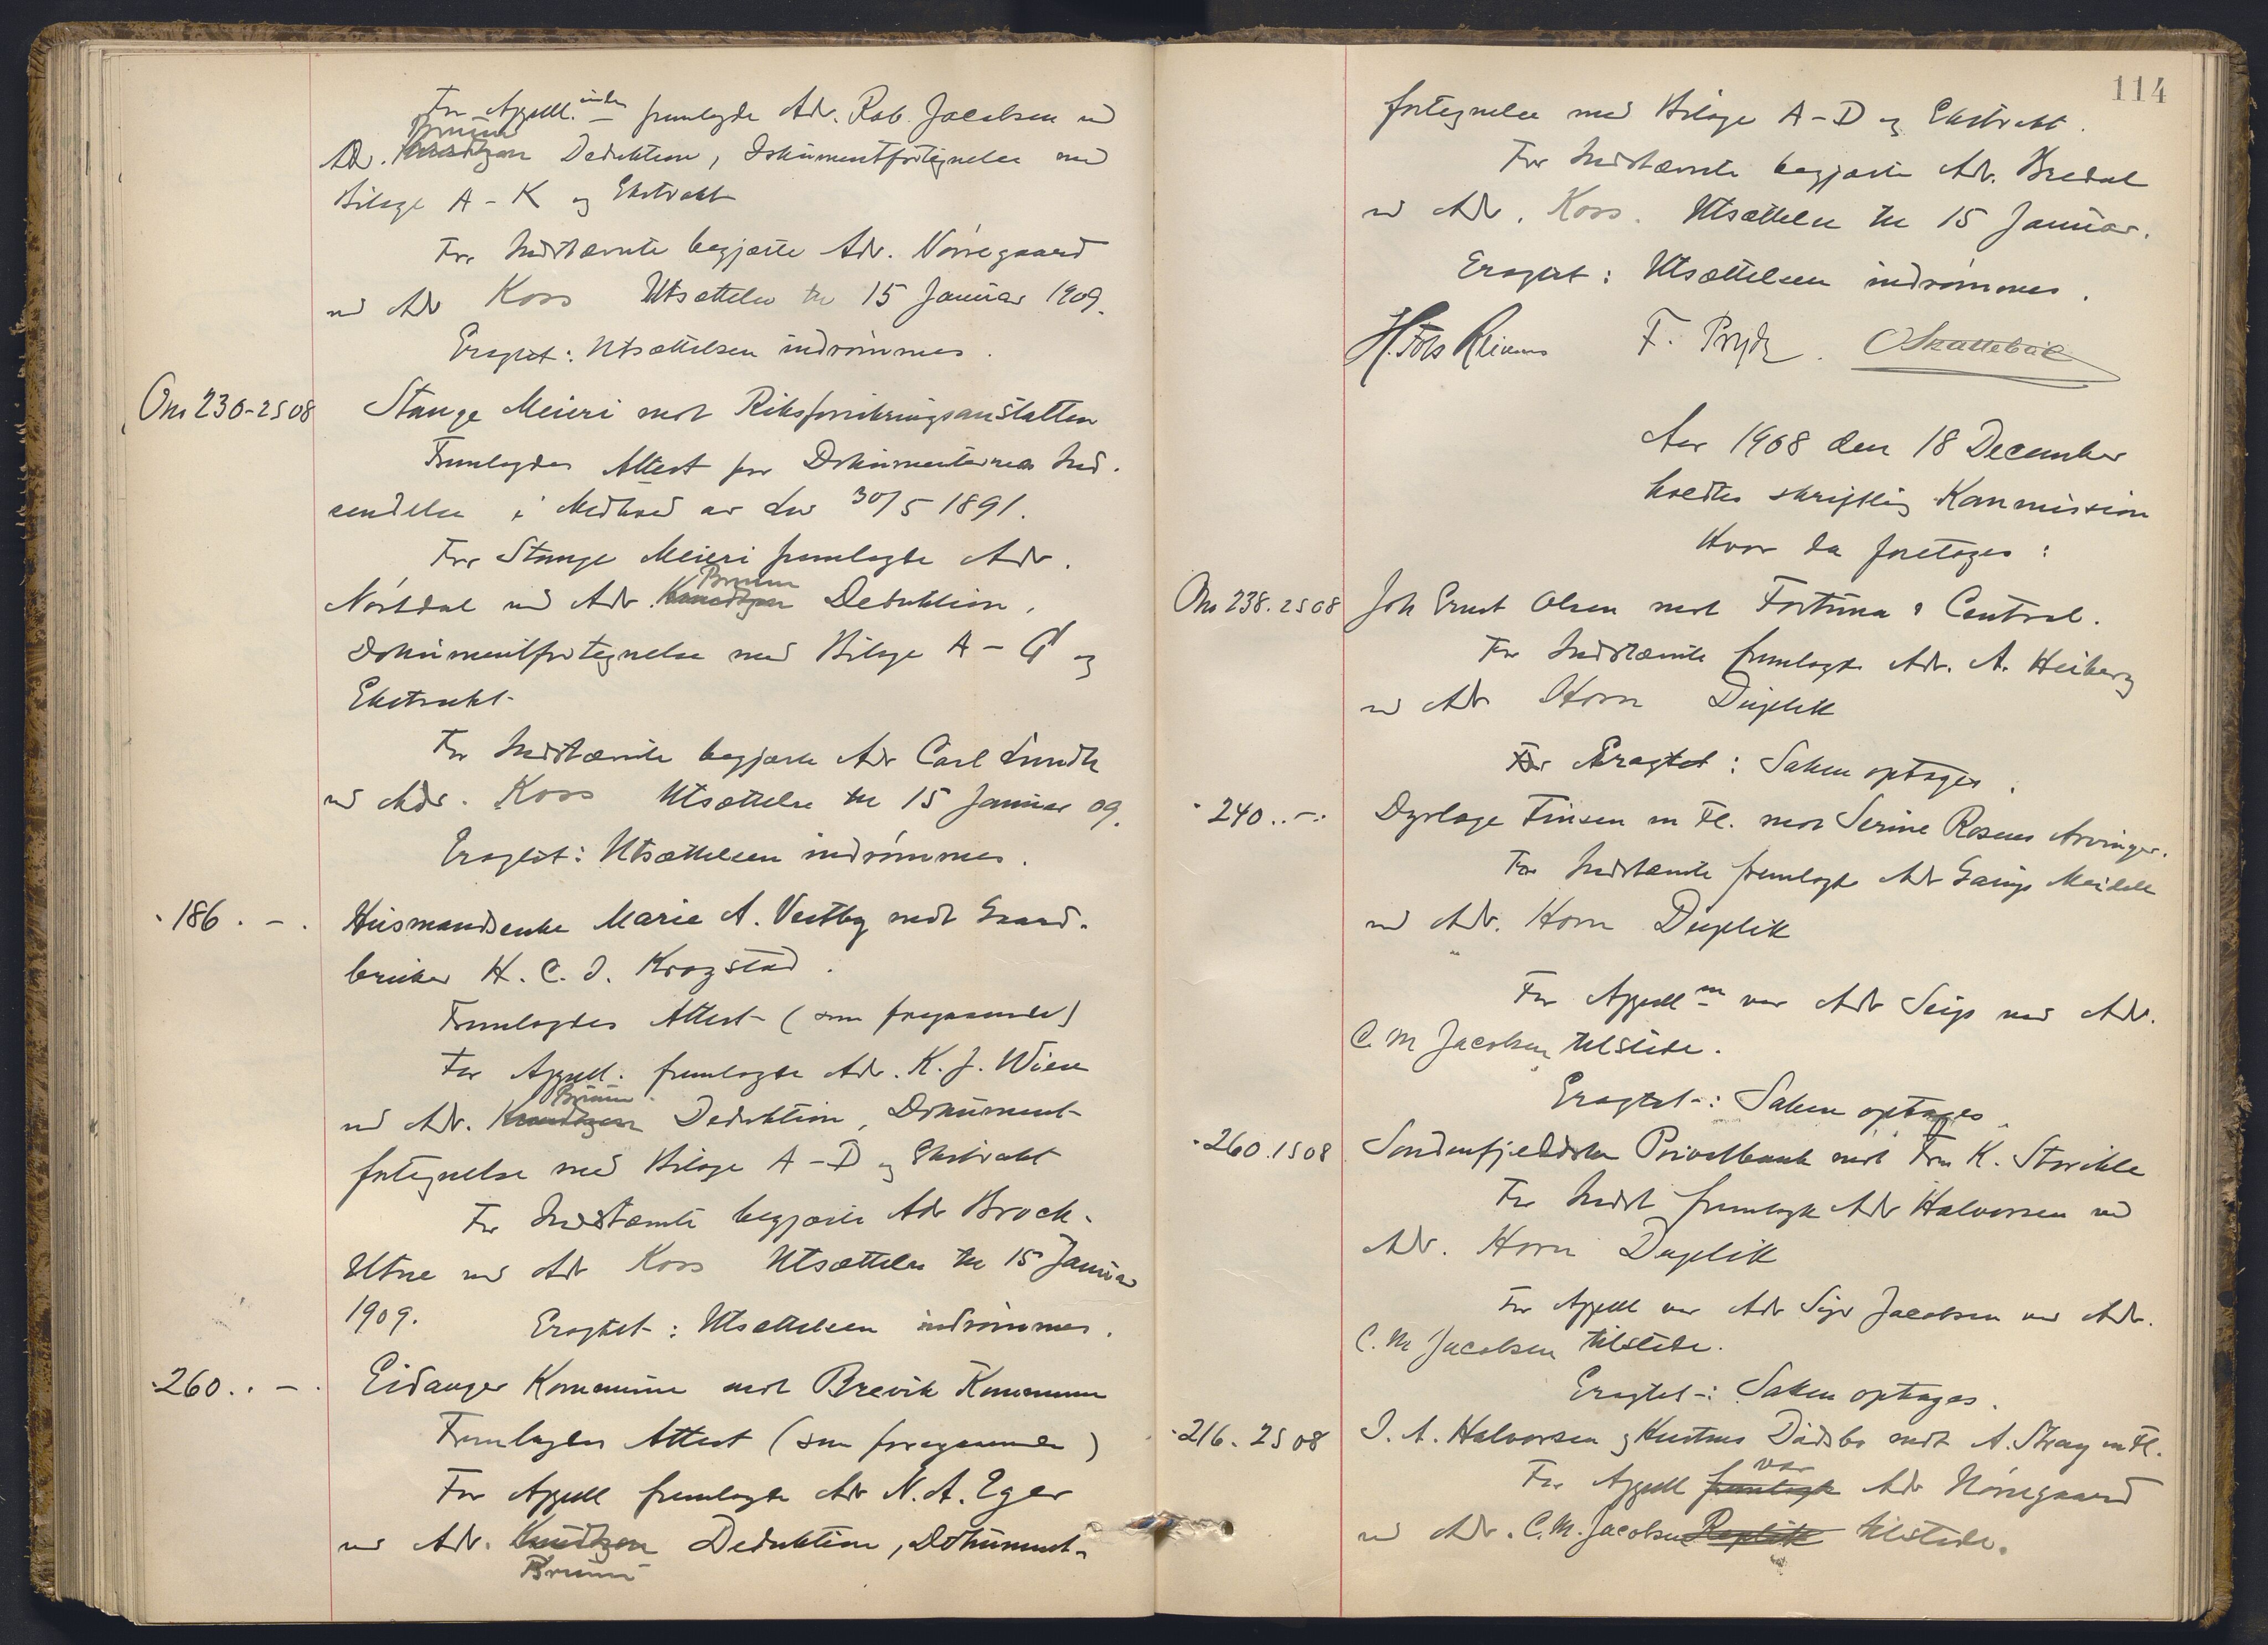 For Appell.inden fremlagde Adv. Rob. Jacobsen ved
Bruun
Ad. Knudtzon Deduktion, Dokumentfortegnelse med
Bilage A - K og Ekstrakt
For Indstævnte begjærte Adv. Nörregaard
ved Adv Koss Utsættelse til 15 Januar 1909.
Eragtet: Utsættelsen indrömmes.
Ons 230-2S 08 Stange Meieri mot Riksforsikringsanstalten
Fremlagdes Attest for Dokumenternes Ind-
sendelse i Medhold av Lov 30/5 1891.
For Stange Meieri fremlagde Adv.
Bruun
Nörtdal ved Adv. Knudtzon Deduktion,
Dokumentfortegnelse med Bilage A - G og
Ekstrakt
For Indstævnte begjærte Adv Carl Lundh
ved Adv. Koss Utsættelse til 15 Januar 09.
Eragtet: Utsættelsen indrömmes.
" 186. - . Husmandsenke Marie A. Vestby mot Gaard-
bruker H. C. J. Krogstad.
Fremlagdes Attest (som foregaaende)
For Appell. fremlagde Adv. K. J. Wiese
Bruun
ved Adv. Knudtzon Deduktion, Dokument-
fortegnelse med Bilage A - D og Ekstrakt
For Indstævnte begjærte Adv Brock-
Utne ved Adv Koss Utsættelse til 15 Januar
1909. Eragtet: Utsættelsen indrömmes.
" 260.. - . Eidanger Kommune mot Brevik Kommune
Fremlagdes Attest (som foregaaende)
For Appell fremlagde Adv N. A. Eger
ved Adv. Knudtzon Deduktion, Dokument-
Bruun
114
fortegnelse med Bilage A - D og Ekstrakt.
For Indstævnte begjærte Adv. Bredal
ved Adv. Koss. Utsættelse til 15 Januar.
Eragtet: Utsættelsen indrömmes.
F.
Aar 1908 den 18 December
holdtes skriftlig Kommission
Hvor da foretoges:
Ons 238. 2S 08 Joh Ernst Olsen mot Fortuna & Central.
For Indstævnte fremlagde Adv. A. Heiberg
ved Adv Horn Duplik
For Eragtet: Saken optages.
" 240.. - . Dyrlæge Finsen m Fl. mot Serine Rosens Arvinger.
For Indstævnte fremlagde Adv Harris Meidell
ved Adv. Horn Duplik
For Appell var Adv Seip ved Adv.
C. M Jacobsen tilstede.
Eragtet: Saken optages
" 260. 1S 08 Söndenfjeldske Privatbank mot Fru K. Storikle
For Indst fremlagde Adv Halvorsen ved
Adv. Horn Duplik
For Appell var Adv Sigv Jacobsen ved Adv.
C. M Jacobsen tilstede.
Eragtet: Saken optages.
" 216. 2S 08 J. A. Halvorsen & Hustrus Dödsbo mot A. Stray m Fl.
var
For Appell fremlagde Adv Nörregaard
ved Adv. C. M. Jacobsen Replik tilstede.